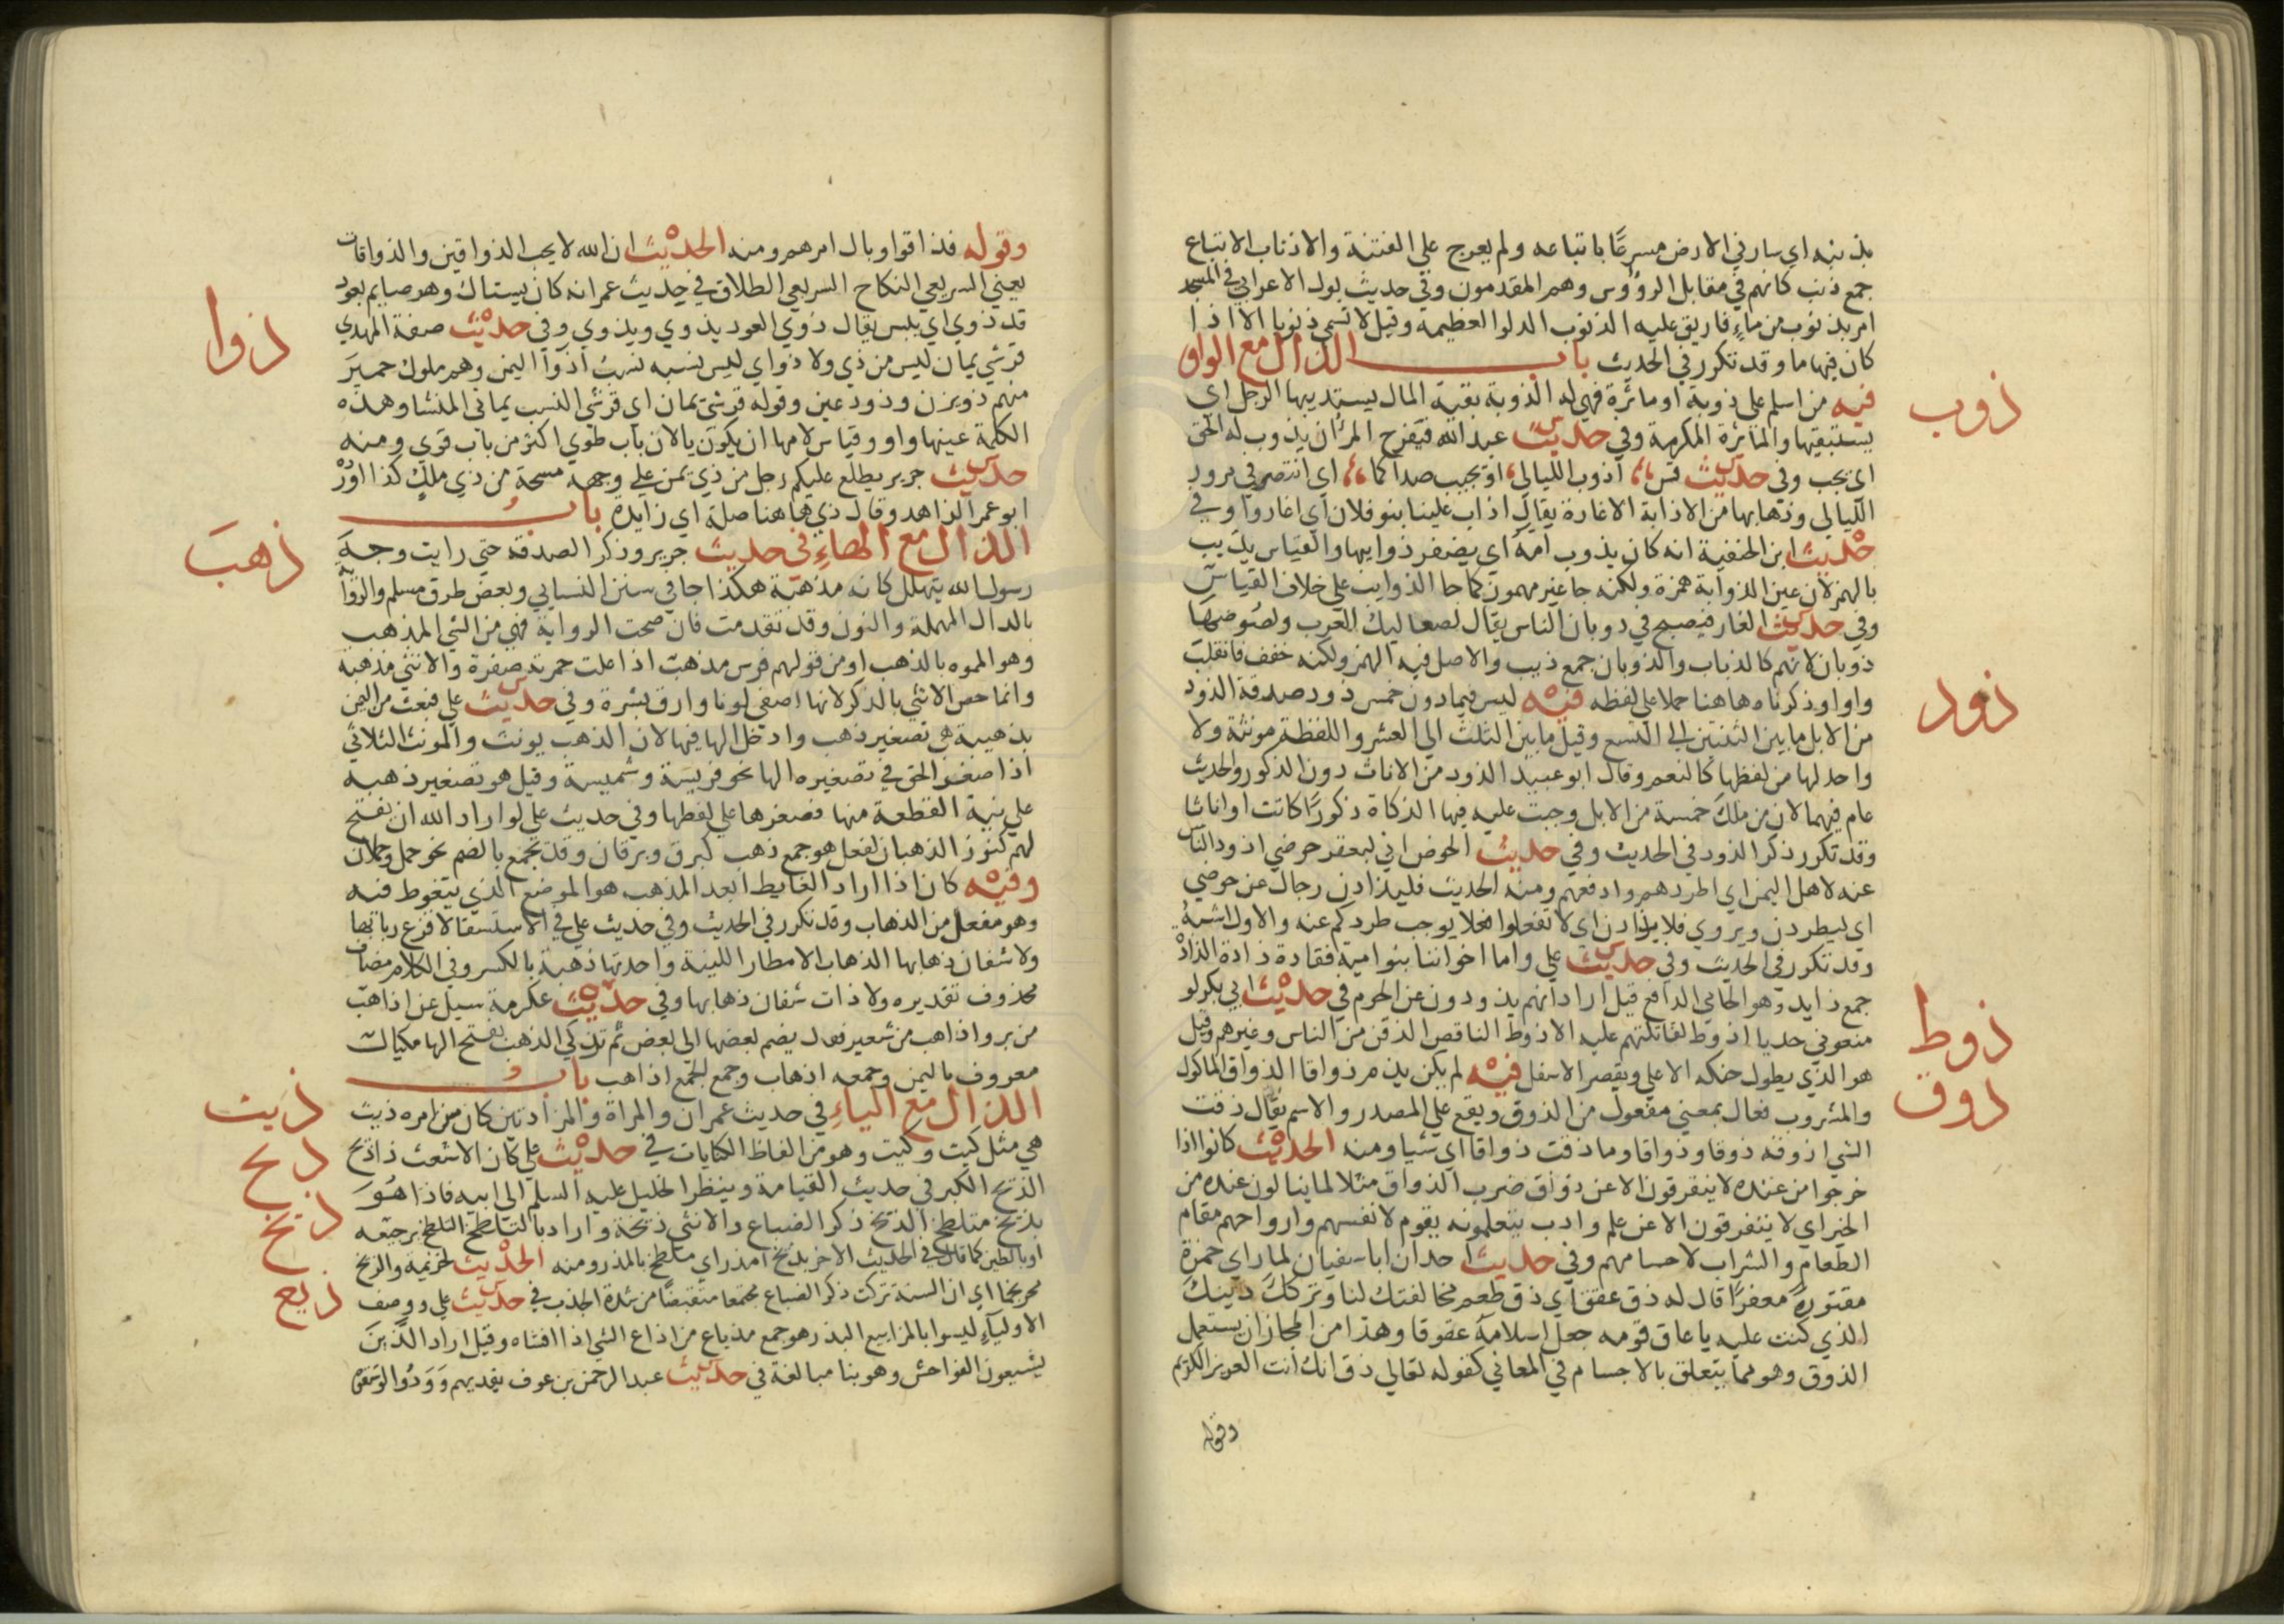 بذنبه اي سار في الارض مسرعًا باتباعه ولم يعرج علي الفتنة والاذناب الاتباع
جمع ذنب كانهم في مقابل الرؤوس وهم المقدمون وفي حديث بول الاعرابي في المسجد
امر بذنوب من ماءٍ فاريق عليه الذنوب الدلو العظيمة وقيل لا تسمي ذنوبا الا اذا
كان فيها ما وقد تكرر في الحديث باب الذال مع الواو
ذوب
فيه من اسلم علي ذوبة او ماثرة فهي له الذوبة بقية المال يستديبها الرجل اي
يستبقيها والماثرة المكرمة وفي حديث عبد الله فيفرح المرؤ ان يذوب له الحق
اي يجب وفي حديث قس اذوب الليالي او يجيب صداكما اي انتصر في مرور
الليالي وذهابها من الاذابة الاغارة يقال اذاب علينا بنو فلان اي اغاروا وفي
حديث ابن الحنفية انه كان يذوب امه اي يضفر ذوايبها والقياس يذيب
بالهمز لان عين الذوابة همزة ولكنه جا غير مهموز كما جا الذوايب علي خلاف القياس
وفي حديث الغار فيصبح في ذوبان الناس يقال لصعاليك العرب ولصوصها
ذوبان لانهم كالذباب والذوبان جمع ذيب والاصل فيه الهمز ولكنه خفف فانقلبت
ذود
واوا وذكرناه هاهنا حملا علي لفظه فيه ليس فيما دون خمس ذود صدقة الذود
من الابل ما بين الثنتين الي التسع وقيل ما بين الثلث الي العشر واللفظة مونثة ولا
واحد لها من لفظها كالنعم وقال ابو عبيد الذود من الاناث دون الذكور والحديث
عام فيهما لان من ملك خمسة من الابل وجبت عليه فيها الزكاة ذكورًا كانت او اناثا
وقد تكرر ذكر الذود في الحديث وفي حديث الحوض اني لبعقر حوضي اذود الناس
عنه لاهل اليمن اي اطردهم وادفعهم ومنه الحديث فليذادن رجال عن حوضي
اي ليطردن ويروي فلا يذادن اي لا تفعلوا فعلا يوجب طردكم عنه والاول اشبه
وقد تكرر في الحديث وفي حديث علي واما اخواننا بنو امية فقادة ذادة الذادة
ذوط
جمع ذايد وهو الحامي الدافع قيل اراد انهم يذودون عن الحرم في حديث ابي بكر لو
منعوني جديا اذوط لقاتلتهم عليه الاذوط الناقص الذقن من الناس وغيرهم وقيل
ذوق
هو الذي يطول حنكه الاعلي ويقصر الاسفل فيه لم يكن يذم ذواقا الذواق الماكول
والمشروب فعال بمعني مفعول من الذوق ويقع علي المصدر والاسم يقال ذقت
الشي اذوقه ذوقا وذواقا وما ذقت ذواقا اي شيا ومنه الحديث كانوا اذا
خرجوا من عنده لا يتفرقون الا عن ذواق ضرب الذواق مثلا لما ينالون عنده من
الخير اي لا يتفرقون الا عن علم وادب يتعلمونه يقوم لانفسهم وارواحهم مقام
الطعام والشراب لاجسامهم وفي حديث احد ان ابا سفيان لما راي حمزة
مقتولا معفرًا قال له ذق عقق اي ذق طعم مخالفتك لنا وتركك دينك
الذي كنت عليه يا عاق قومه جعل اسلامه عقوقا وهذا من المجاز ان يستعمل
الذوق وهو مما يتعلق بالاجسام في المعاني كقوله تعالي ذق انك انت العزيز الكريم
وقوله
وقوله فذاقوا وبال امرهم ومنه الحديث ان الله لا يحب الذواقين والذواقات
يعني السريعي النكاح السريعي الطلاق في حديث عمر انه كان يستاك وهو صايم بعود
ذوا
قد ذوي اي يبس يقال ذوي العود يذوي ويذوي وفي حديث صفة المهدي
قرشي يمان ليس من ذي ولا ذو اي ليس نسبه نسب اذوا اليمن وهم ملوك حمير
منهم ذو يزن وذو رعين وقوله قرشي يمان اي قرشي النسب يماني المنشا وهذه
الكلمة عينها واو وقياس لامها ان يكون يا لان باب طوي اكثر من باب قوي ومنه
حديث جرير يطلع عليكم رجل من ذي يمن علي وجهه مسحة من ذي ملك كذا اورده
ابو عمر الزاهد وقال ذي هاهنا صلة اي زايدة باب
ذهب
الذال مع الهاءِ في حديث جرير وذكر الصدقة حتي رايت وجه
رسول الله يتهلل كانه مذهبة هكذا جا في سنن النسايي وبعض طرق مسلم والرواية
بالدال المهملة والنون وقد تقدمت فان صحت الرواية فهي من الشي المذهب
وهو المموه بالذهب او من قولهم فرس مذهب اذا علت حمرته صفرة والانثي مذهبة
وانما خص الانثي بالذكر لانها اصفي لونا وارق بشرة وفي حديث علي فبعث من اليمن
بذهيبة هي تصغير ذهب وادخل الها فيها لان الذهب يونث والمونث الثلاثي
اذا صغر الحق في تصغيره الها نحو فريسة وشميسة وقيل هو تصغير ذهبة
علي نية القطعة منها فصغرها علي لفظها وفي حديث علي لو اراد الله ان يفتح
لهم كنوز الذهبان لفعل هو جمع ذهب كبرق وبرقان وقد يجمع بالضم نحو حمل وحملان
وفيه كان اذا اراد الغايط ابعد المذهب هو الموضع الذي يتغوط فيه
وهو مفعل من الذهاب وقد تكرر في الحديث وفي حديث علي في الاستسقا لا قزع ربابها
ولا شفان ذهابها الذهاب الامطار اللينة واحدتها ذهبة بالكسر وفي الكلام مضاف
محذوف تقديره ولا ذات شفان ذهابها وفي حديث عكرمة سيل عن اذاهب
من بر واذاهب من شعير فقال يضم بعضها الي بعض ثم تزكي الذهب بفتح الها مكيال
معروف باليمن وجمعه اذهاب وجمع الجمع اذاهب باب
ذيت
الذال مع الياءِ في حديث عمران والمراة والمزادتين كان من امره ذيت
ذيح
هي مثل كيت وكيت وهو من الفاظ الكنايات في حديث علي كان الاشعث ذا ذيح
ذيخ
الذيح الكبر في حديث القيامة وينظر الخليل عليه السلم الي ابيه فاذا هو
بذيخ متلطخ الذيخ ذكر الضباع والانثي ذيخة واراد بالتلطخ التلطخ برجيعه
او بالطين كما قال في الحديث الاخر بذيخ امدر اي متلطخ بالمدر ومنه الحديث لخزيمة والذيخ
ذيع
محرنجما اي ان السنة تركت ذكر الضباع مجتمعا منقبضًا من شدة الجدب في حديث علي ووصف
الاولياءِ ليسوا بالمذاييع البذر هو جمع مذياع من اذاع الشي اذا افشاه وقيل اراد الذين
يشيعون الفواحش وهو بنا مبالغة في حديث عبد الرحمن بن عوف يفديهم وودوا لو